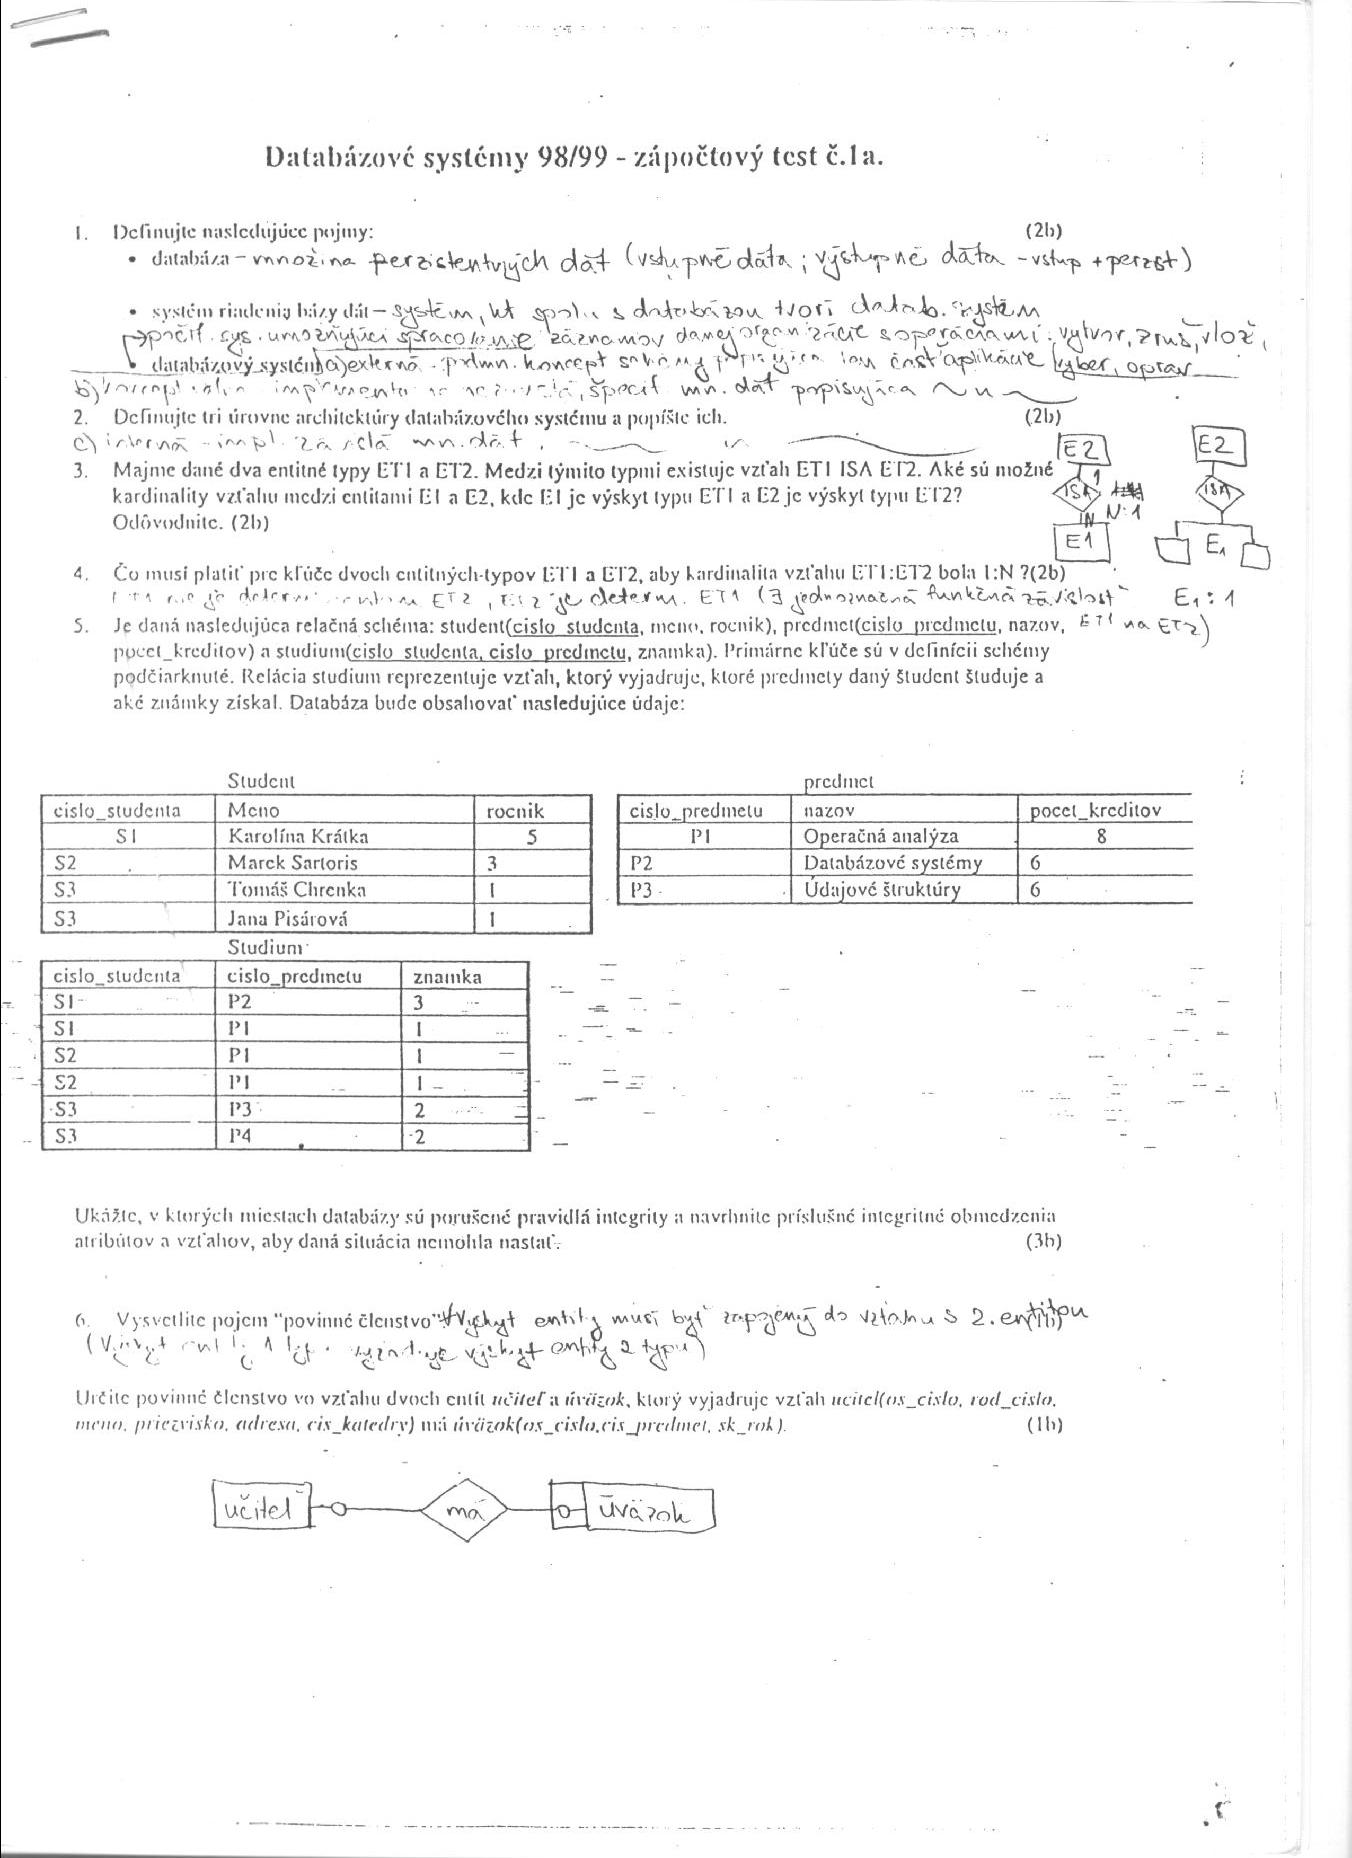 Databázové systémy 98/99 - zápočtový test č.1a.
1. Definujte nasledujúce pojmy: (2b)
• databáza - množina perzistentných dát (vstupné dáta; výstupné dáta - vstup + perzist)
• systém riadenia bázy dát - systém, kt spolu s databázou tvorí datab. systém
→ počít. sys. umožňujúci spracovanie záznamov danej organizácie s operáciami: vytvor, zruš, vlož,
• databázový systém a) externá - podmn. koncept schémy popisujúca len časť aplikácie vyber, oprav
b) implementa nezávislá, špecif mn. dát popisujúca
2. Definujte tri úrovne architektúry databázového systému a popíšte ich. (2b)
c) interná - impl. závislá mn. dát,
3. Majme dané dva entitné typy ET1 a ET2. Medzi týmito typmi existuje vzťah ET1 ISA ET2. Aké sú možné
kardinality vzťahu medzi entitami E1 a E2, kde E1 je výskyt typu ET1 a E2 je výskyt typu ET2?
Odôvodnite. (2b)
E2
1
ISA
N:1
N
E1
E2
ISA
E1
4. Čo musí platiť pre kľúče dvoch entitných typov ET1 a ET2, aby kardinalita vzťahu ET1:ET2 bola 1:N ?(2b)
ET1 nie je determinantom ET2, ET2 je determ. ET1 (∃ jednoznačná funkčná závislosť E1:1
ET1 na ET2)
5. Je daná nasledujúca relačná schéma: student(cislo_studenta, meno, rocnik), predmet(cislo_predmetu, nazov,
pocet_kreditov) a studium(cislo_studenta, cislo_predmetu, znamka). Primárne kľúče sú v definícii schémy
podčiarknuté. Relácia studium reprezentuje vzťah, ktorý vyjadruje, ktoré predmety daný študent študuje a
aké známky získal. Databáza bude obsahovať nasledujúce údaje:
Student
cislo_studenta Meno rocnik
S1 Karolína Krátka 5
S2 Marek Sartoris 3
S3 Tomáš Chrenka 1
S3 Jana Pisárová 1
predmet
cislo_predmetu nazov pocet_kreditov
P1 Operačná analýza 8
P2 Databázové systémy 6
P3 Údajové štruktúry 6
Studium
cislo_studenta cislo_predmetu znamka
S1 P2 3
S1 P1 1
S2 P1 1
S2 P1 1
S3 P3 2
S3 P4 2
Ukážte, v ktorých miestach databázy sú porušené pravidlá integrity a navrhnite príslušné integritné obmedzenia
atribútov a vzťahov, aby daná situácia nemohla nastať. (3b)
6. Vysvetlite pojem "povinné členstvo" ∀ Výskyt entity musí byť zapojený do vzťahu s 2. entitou
(Výskyt entity 1 typ. vyžaduje výskyt entity 2 typu)
Určite povinné členstvo vo vzťahu dvoch entít učiteľ a úväzok, ktorý vyjadruje vzťah ucitel(os_cislo, rod_cislo,
meno, priezvisko, adresa, cis_katedry) má úväzok(os_cislo,cis_predmet, sk_rok). (1b)
učiteľ má úväzok